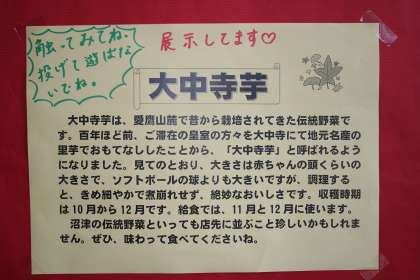 触ってみてね、
投げて遊ばな
いでね。
展示してます♡
大中寺芋
大中寺芋は、愛鷹山麓で昔から栽培されてきた伝統野菜で
す。百年ほど前、ご滞在の皇室の方々を大中寺にて地元名産の
里芋でおもてなししたことから、「大中寺芋」と呼ばれるよう
になりました。見てのとおり、大きさは赤ちゃんの頭くらいの
大きさで、ソフトボールの球よりも大きいですが、調理する
と、きめ細やかで煮崩れせず、絶妙なおいしさです。収穫時期
は10月から12月です。給食では、11月と12月に使います。
沼津の伝統野菜といっても店先に並ぶこと珍しいかもしれま
せん。ぜひ、味わって食べてくださいね。